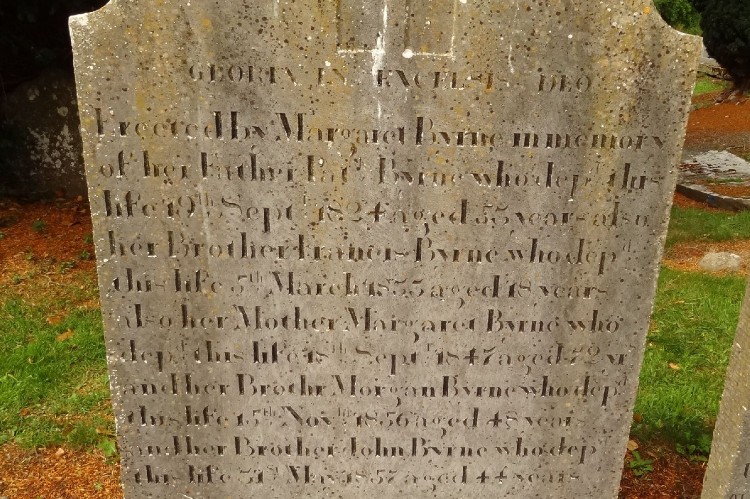 GLORIA IN EXCELSIS DEO
Erected by Margaret Byrne in memory
of her Father Patk. Byrne who depd. this
life 19th Septr. 1824 aged 55 years also
her Brother Francis Byrne who depd.
this life 5th March 1835 aged 18 years
also her Mother Margaret Byrne who
depd. this life 18th Septr. 1847 aged 72 yr
and her Brothr Morgan Byrne who depd.
this life 15th Novbr 1856 aged 48 years
and her Brother John Byrne who dep
this life 31st May 1857 aged 44 years